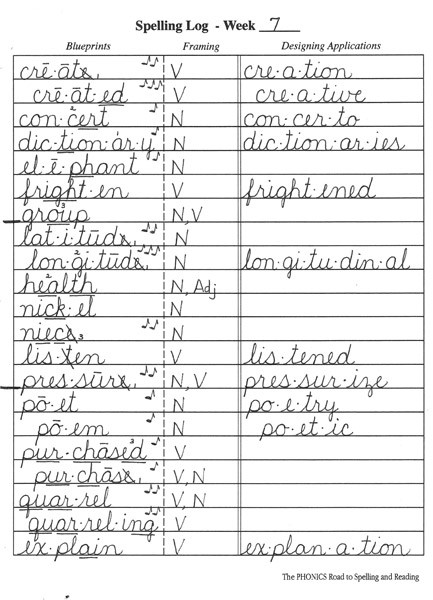 Spelling Log - Week 7
Blueprints Framing Designing Applications
crē·āte V cre·a·tion
crē·āt·ed V cre·a·tive
con·cert N con·cer·to
dic·tion·ar·y N dic·tion·ar·ies
el·ē·phant N
fright·en V fright·ened
group N,V
lat·i·tūde N
lon·gi·tūde N lon·gi·tu·din·al
health N, Adj
nick·el N
niece N
lis·ten V lis·tened
pres·sūre N,V pres·sur·ize
pō·et N po·e·try
pō·em N po·et·ic
pur·chāsed V
pur·chāse V,N
quar·rel V,N
quar·rel·ing V
ex·plain V ex·plan·a·tion
The PHONICS Road to Spelling and Reading